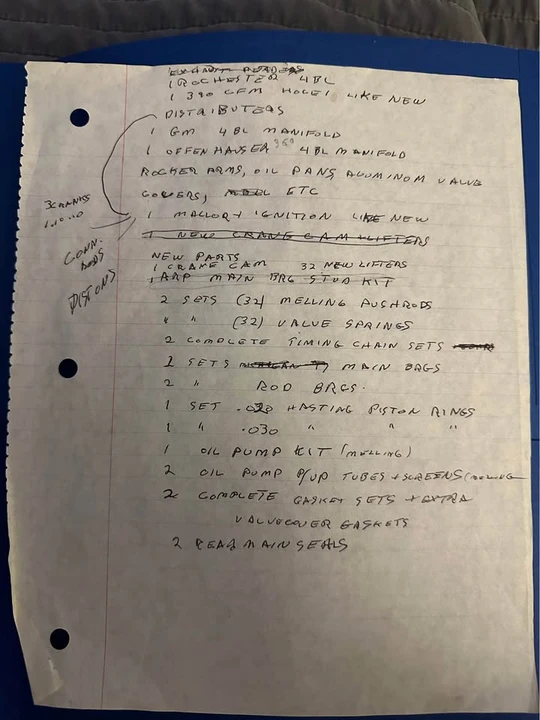 1 ROCHESTER 4 BL
1 390 CFM HOLEY LIKE NEW
DISTRIBUTERS
1 GM 4 BL MANIFOLD
1 OFFENHAUSER 360 4 BL MANIFOLD
ROCKER ARMS, OIL PANS, ALUMINOM VALUE
COVERS, ETC
1 MALLORY IGNITION LIKE NEW
1 NEW CRANE CAM + LIFTERS
3 CRANKS
CONN.
RODS
PISTONS
NEW PARTS
1 CRANE CAM 32 NEW LIFTERS
1 ARP MAIN BRG STUD KIT
2 SETS (32) MELLING PUSHRODS
" " (32) VALUE SPRINGS
2 COMPLETE TIMING CHAIN SETS
SETS MAIN BRGS
2 " ROD BRGS.
1 SET HASTING PISTON RINGS
1 " .030 " " "
1 OIL PUMP KIT (MELLING)
2 OIL PUMP P/UP TUBES + SCREENS (MELLING
2 COMPLETE GASKET SETS + EXTRA
VALVECOVER GASKETS
2 REAR MAIN SEALS